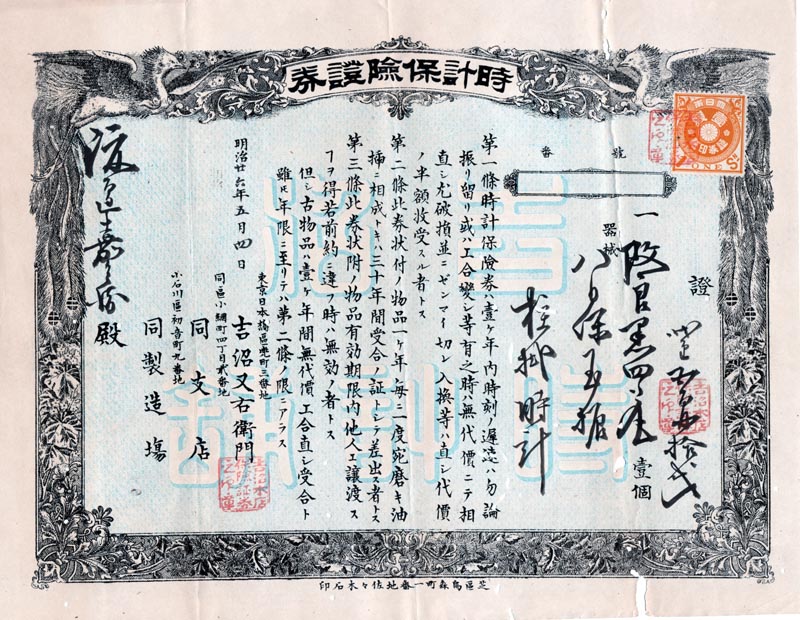 時計保險證券
號
番
證
壹個
器械
柱掛時計
第一條時計保險券ハ壹ヶ年內時刻ノ遲速ハ勿論
振リ留リ或ハ工合變シ等有之時ハ無代價ニテ相
直シ尤破損並ニゼンマイ切レ入換等ハ直シ代價
ノ半額收受スル者トス
第二條此券狀付ノ物品一ヶ年每ニ二度宛磨キ油
揷ニ相成トキハ三十年間受合ノ証トシテ差出ス者トス
第三條此券狀附ノ物品有效期限內他人ニ讓渡ス
ヿヲ得若前約ニ違フ時ハ無効ノ者トス
但シ古物品ハ壹ヶ年間無代價工合直シ受合ト
雖𪜈年限ニ至リテハ第二條ノ限ニアラス
明治廿六年五月四日
東京日本橋區兜町三番地
吉沼又右衛門
同區小網町四丁目貳番地
同支店
小石川區初音町九番地
同製造塲
殿
芝區烏森町一番地佐々木石印
ONE Sⁿ